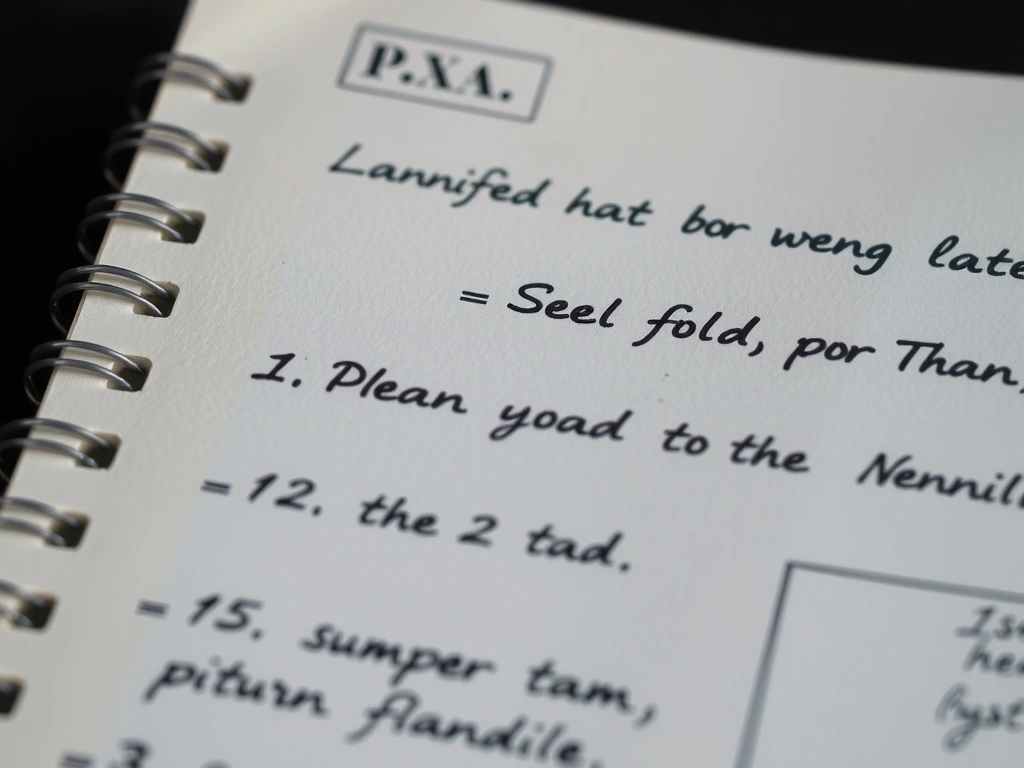 P.XA.
Lannifed hat bor weng late
= Seel fold, por Than,
1. Plean yoad to the Nennil
= 12. the 2 tad.
= 15. sumper tam,
piturn flandile.
= 3.